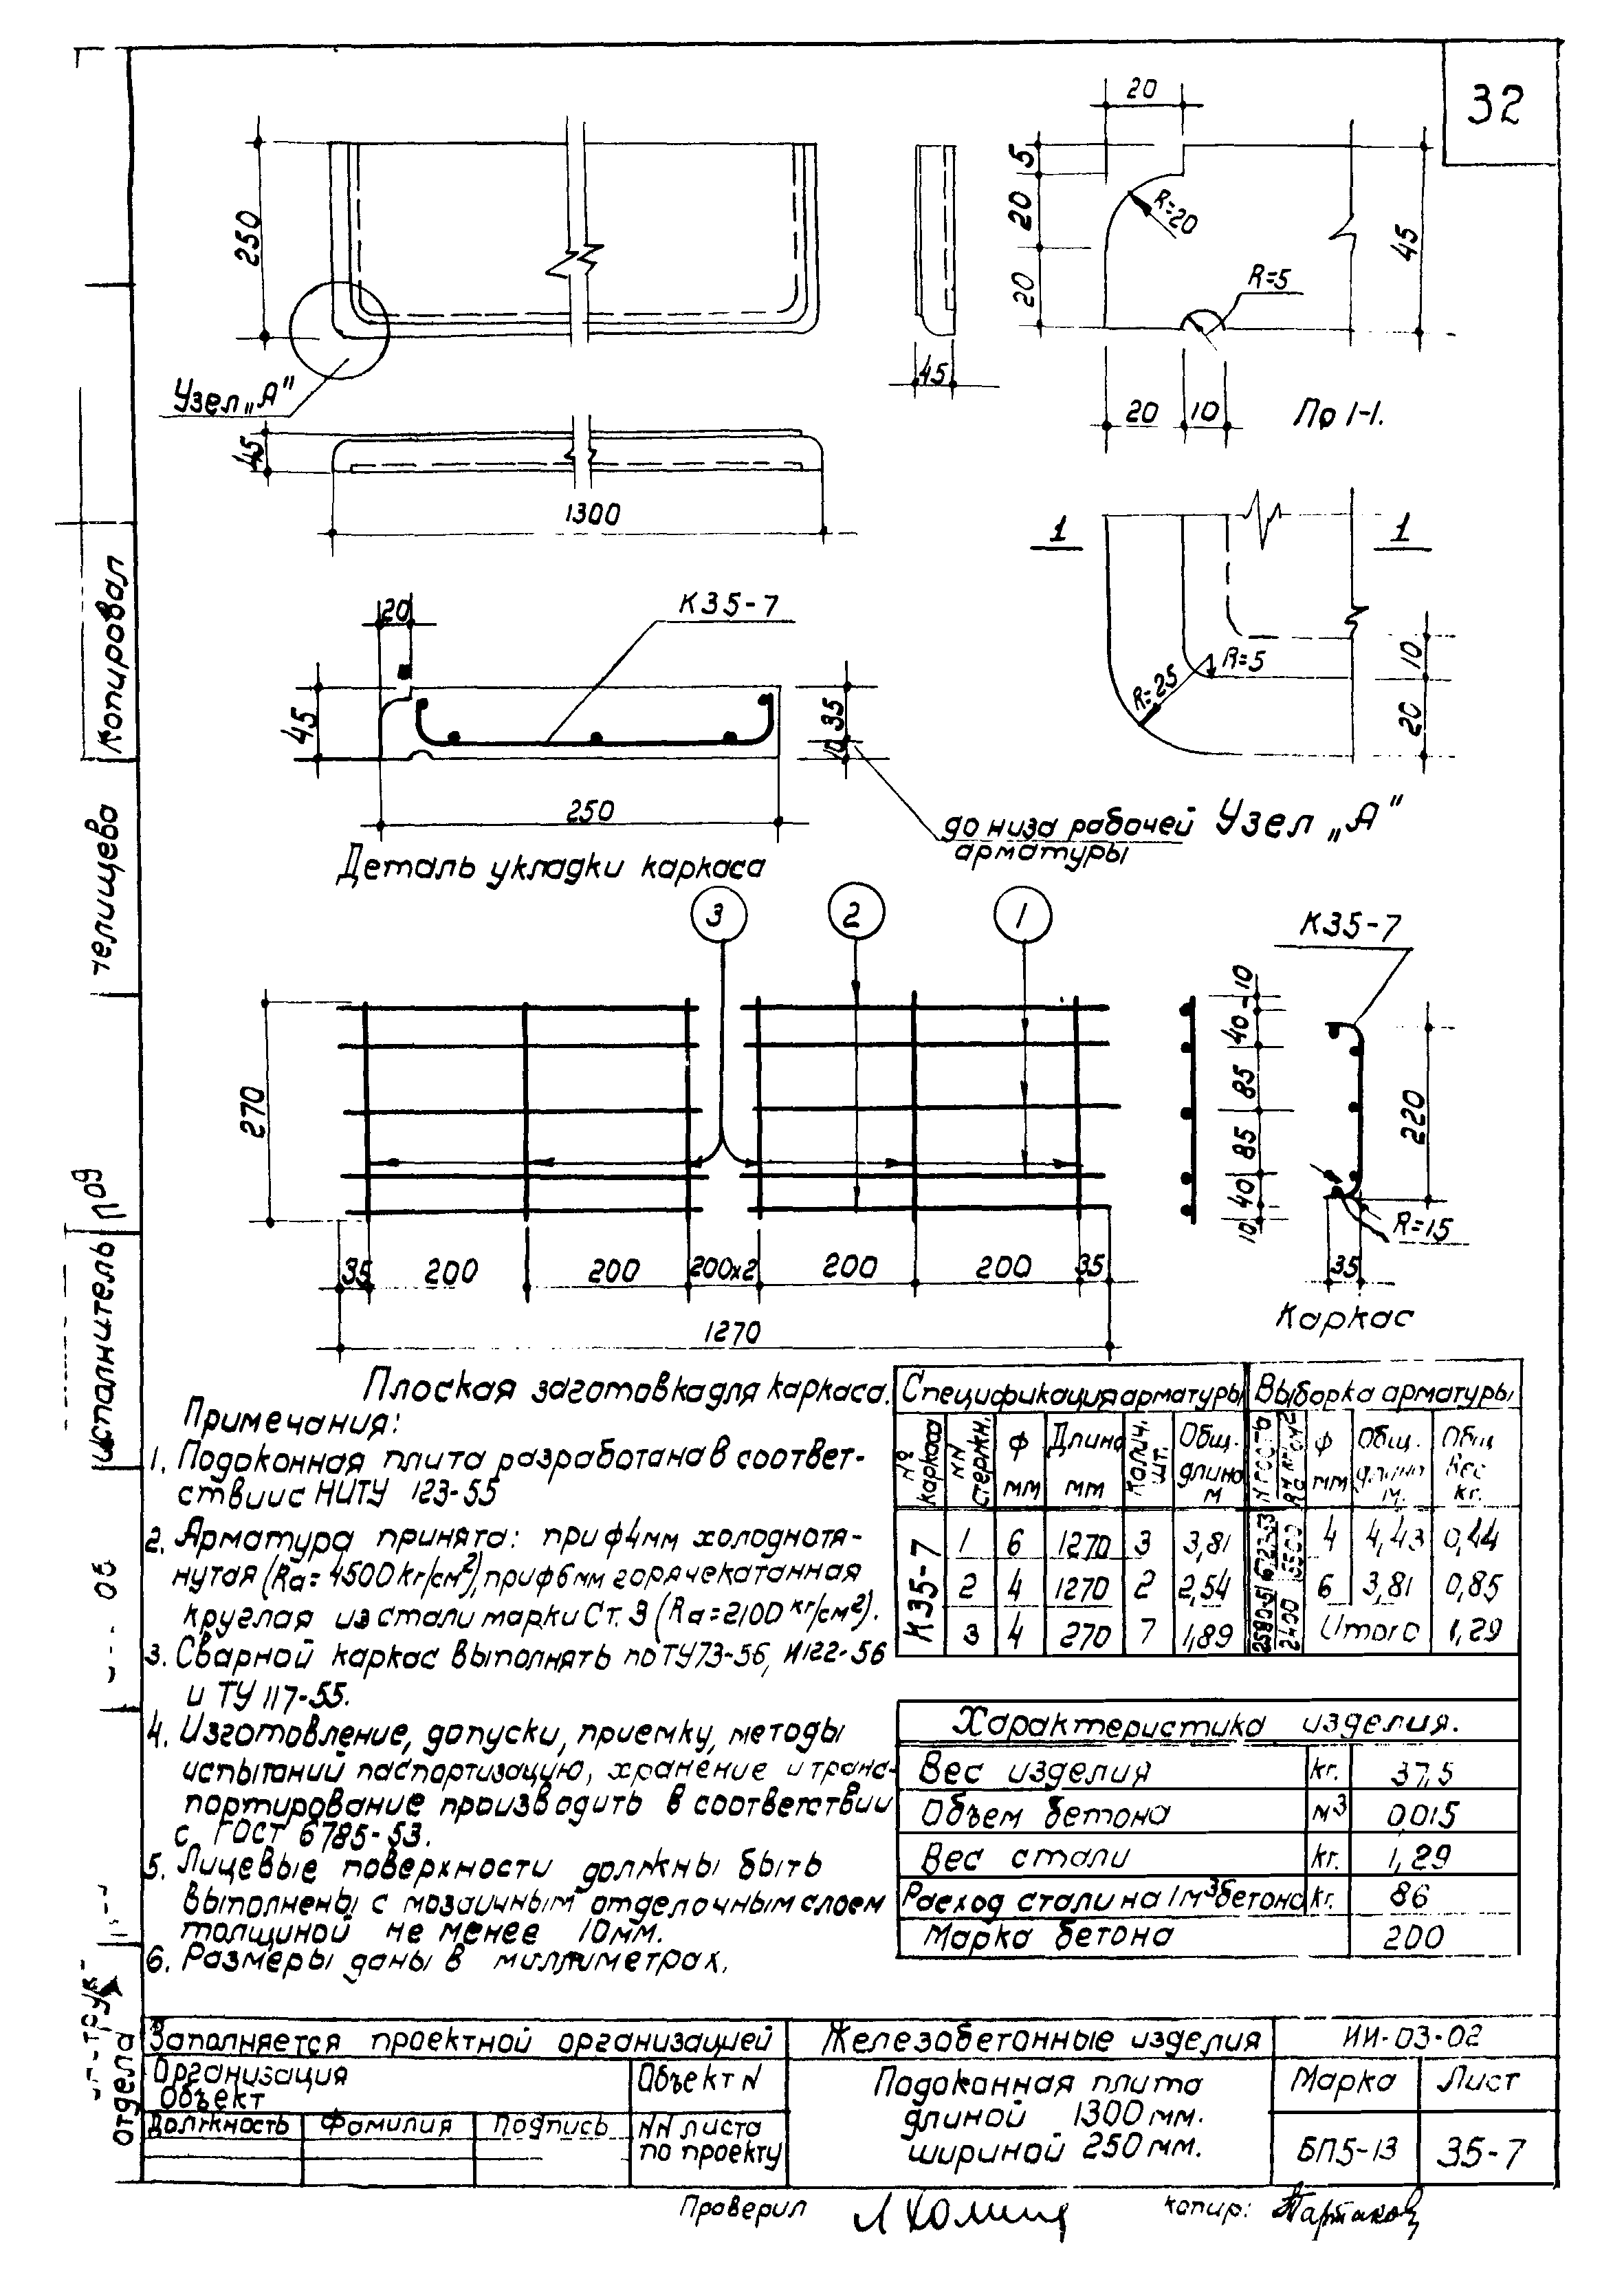 32
20
250
5
20
20
R=20
R=5
45
45
Узел „А"
20
10
Пр 1-1.
45
1300
1
1
20
К35-7
45
35
10
250
R=5
R=25
10
20
до низа рабочей
арматуры
Узел „А"
Деталь укладки каркаса
3
2
1
К35-7
270
10
40
85
85
40
10
220
R=15
35
35
200
200
200х2
200
200
35
1270
Каркас
Плоская заготовка для каркаса.
Примечания:
1. Подоконная плита разработана в соответ-
ствии с НИТУ 123-55
2. Арматура принята: при ф4мм холоднотя-
нутая (Rа=4500кг/см²), при ф6мм горячекатанная
круглая из стали марки Ст. 3 (Rа=2100 кг/см²).
3. Сварной каркас выполнять по ТУ73-56, И122-56
и ТУ 117-55.
4. Изготовление, допуски, приемку, методы
испытаний паспортизацию, хранение и транс-
портирование производить в соответствии
с ГОСТ 6785-53.
5. Лицевые поверхности должны быть
выполнены с мозаичным отделочным слоем
толщиной не менее 10мм.
6. Размеры даны в миллиметрах.
Спецификация арматуры Выборка арматуры
№ каркаса NN стержн. ф мм Длина мм Колич. шт. Общ. длина м ф мм Общ. длина м. Общ вес кг.
К35-7
1 6 1270 3 3,81 4 4,43 0,44
2 4 1270 2 2,54 6 3,81 0,85
3 4 270 7 1,89 Итого 1,29
6723-53 5500
2590-51 2400
Характеристика изделия.
Вес изделия кг. 37,5
Объем бетона м³ 0,015
Вес стали кг. 1,29
Расход стали на 1м³ бетона кг. 86
Марка бетона 200
Заполняется проектной организацией
Организация
Объект
Объект N
Должность Фамилия Подпись
NN листа
по проекту
Железобетонные изделия
Подоконная плита
длиной 1300мм.
шириной 250мм.
ИИ-03-02
Марка Лист
БП5-13 35-7
Проверил
копир:
Копировал
Телищева
Исполнитель
отдела